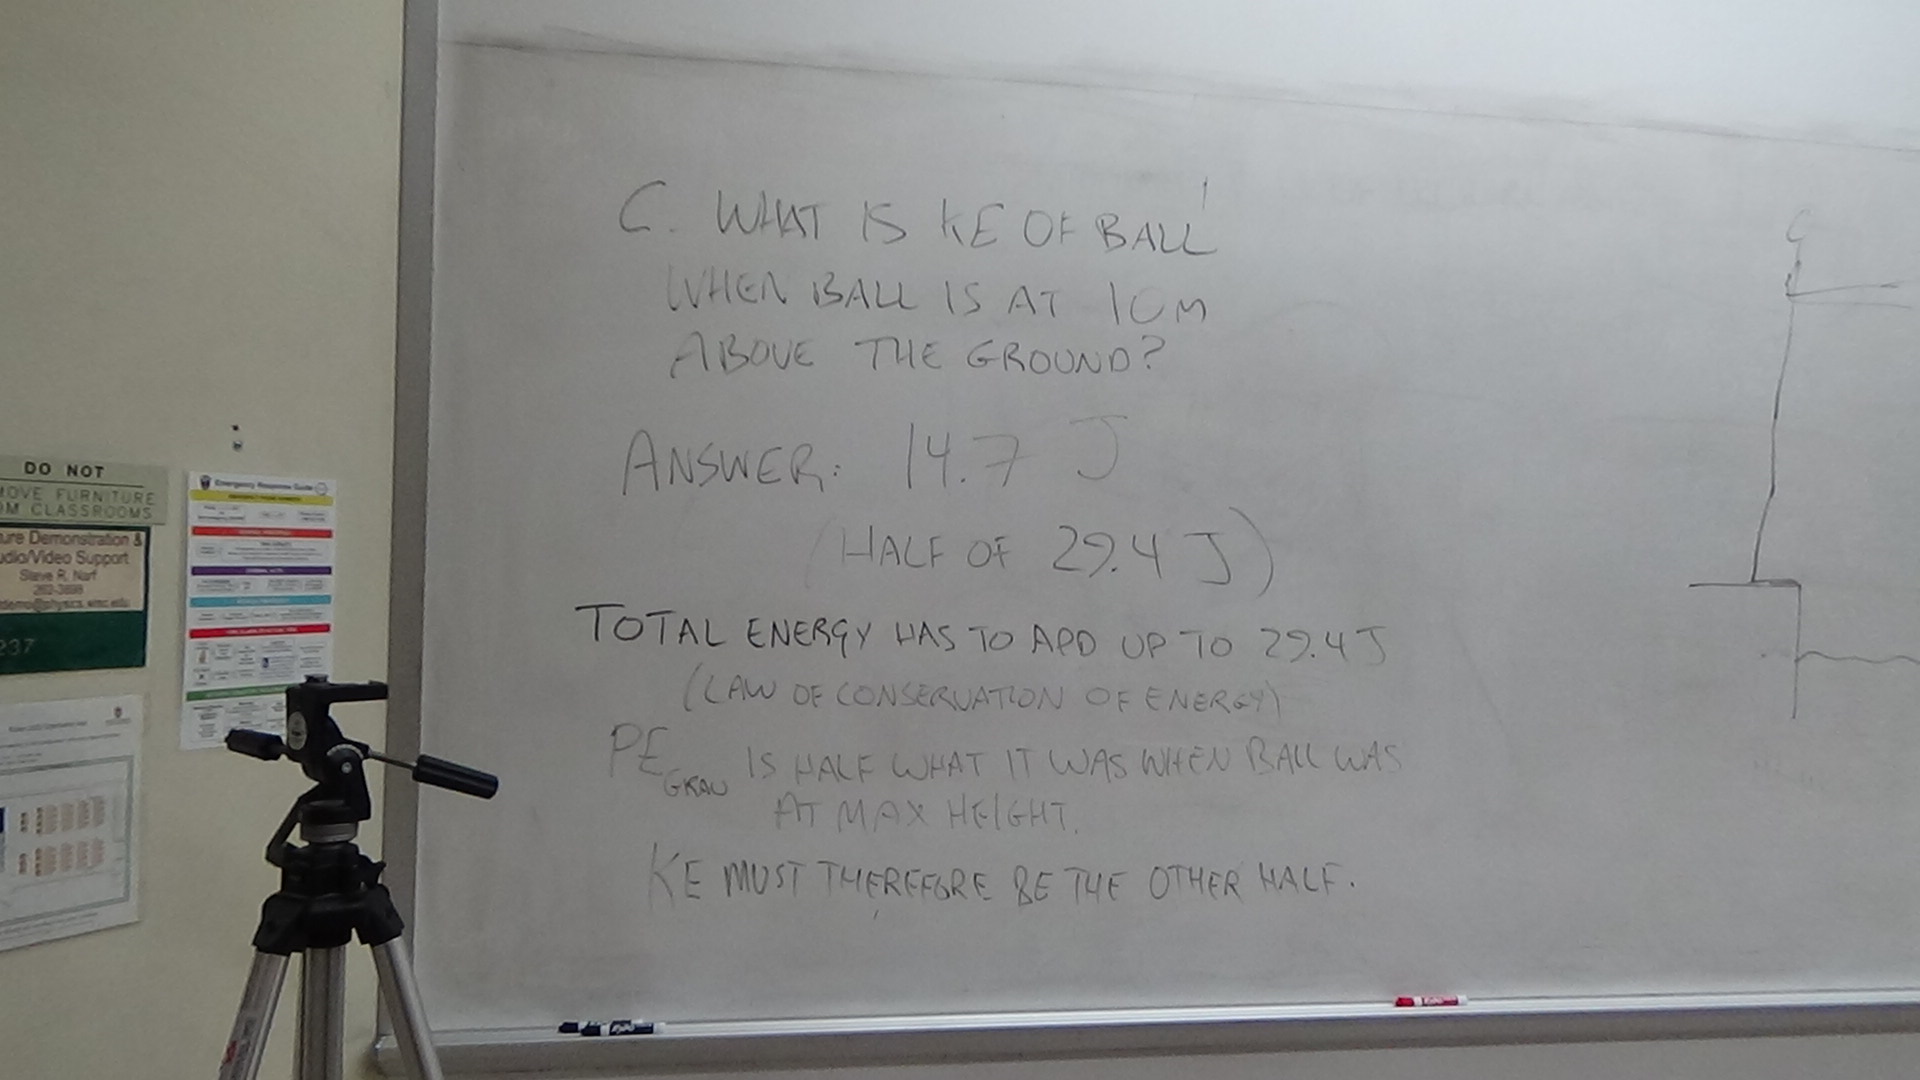 C. WHAT IS KE OF BALL
WHEN BALL IS AT 10M
ABOVE THE GROUND?
ANSWER: 14.7 J
(HALF OF 29.4 J)
TOTAL ENERGY HAS TO ADD UP TO 29.4 J
(LAW OF CONSERVATION OF ENERGY)
PE GRAV IS HALF WHAT IT WAS WHEN BALL WAS
AT MAX HEIGHT.
KE MUST THEREFORE BE THE OTHER HALF.
DO NOT
MOVE FURNITURE
OM CLASSROOMS
ture Demonstration &
udio/Video Support
Steve R. Narf
262-3898
demo@physics.wisc.edu
237
Emergency Response Guide
EXPO